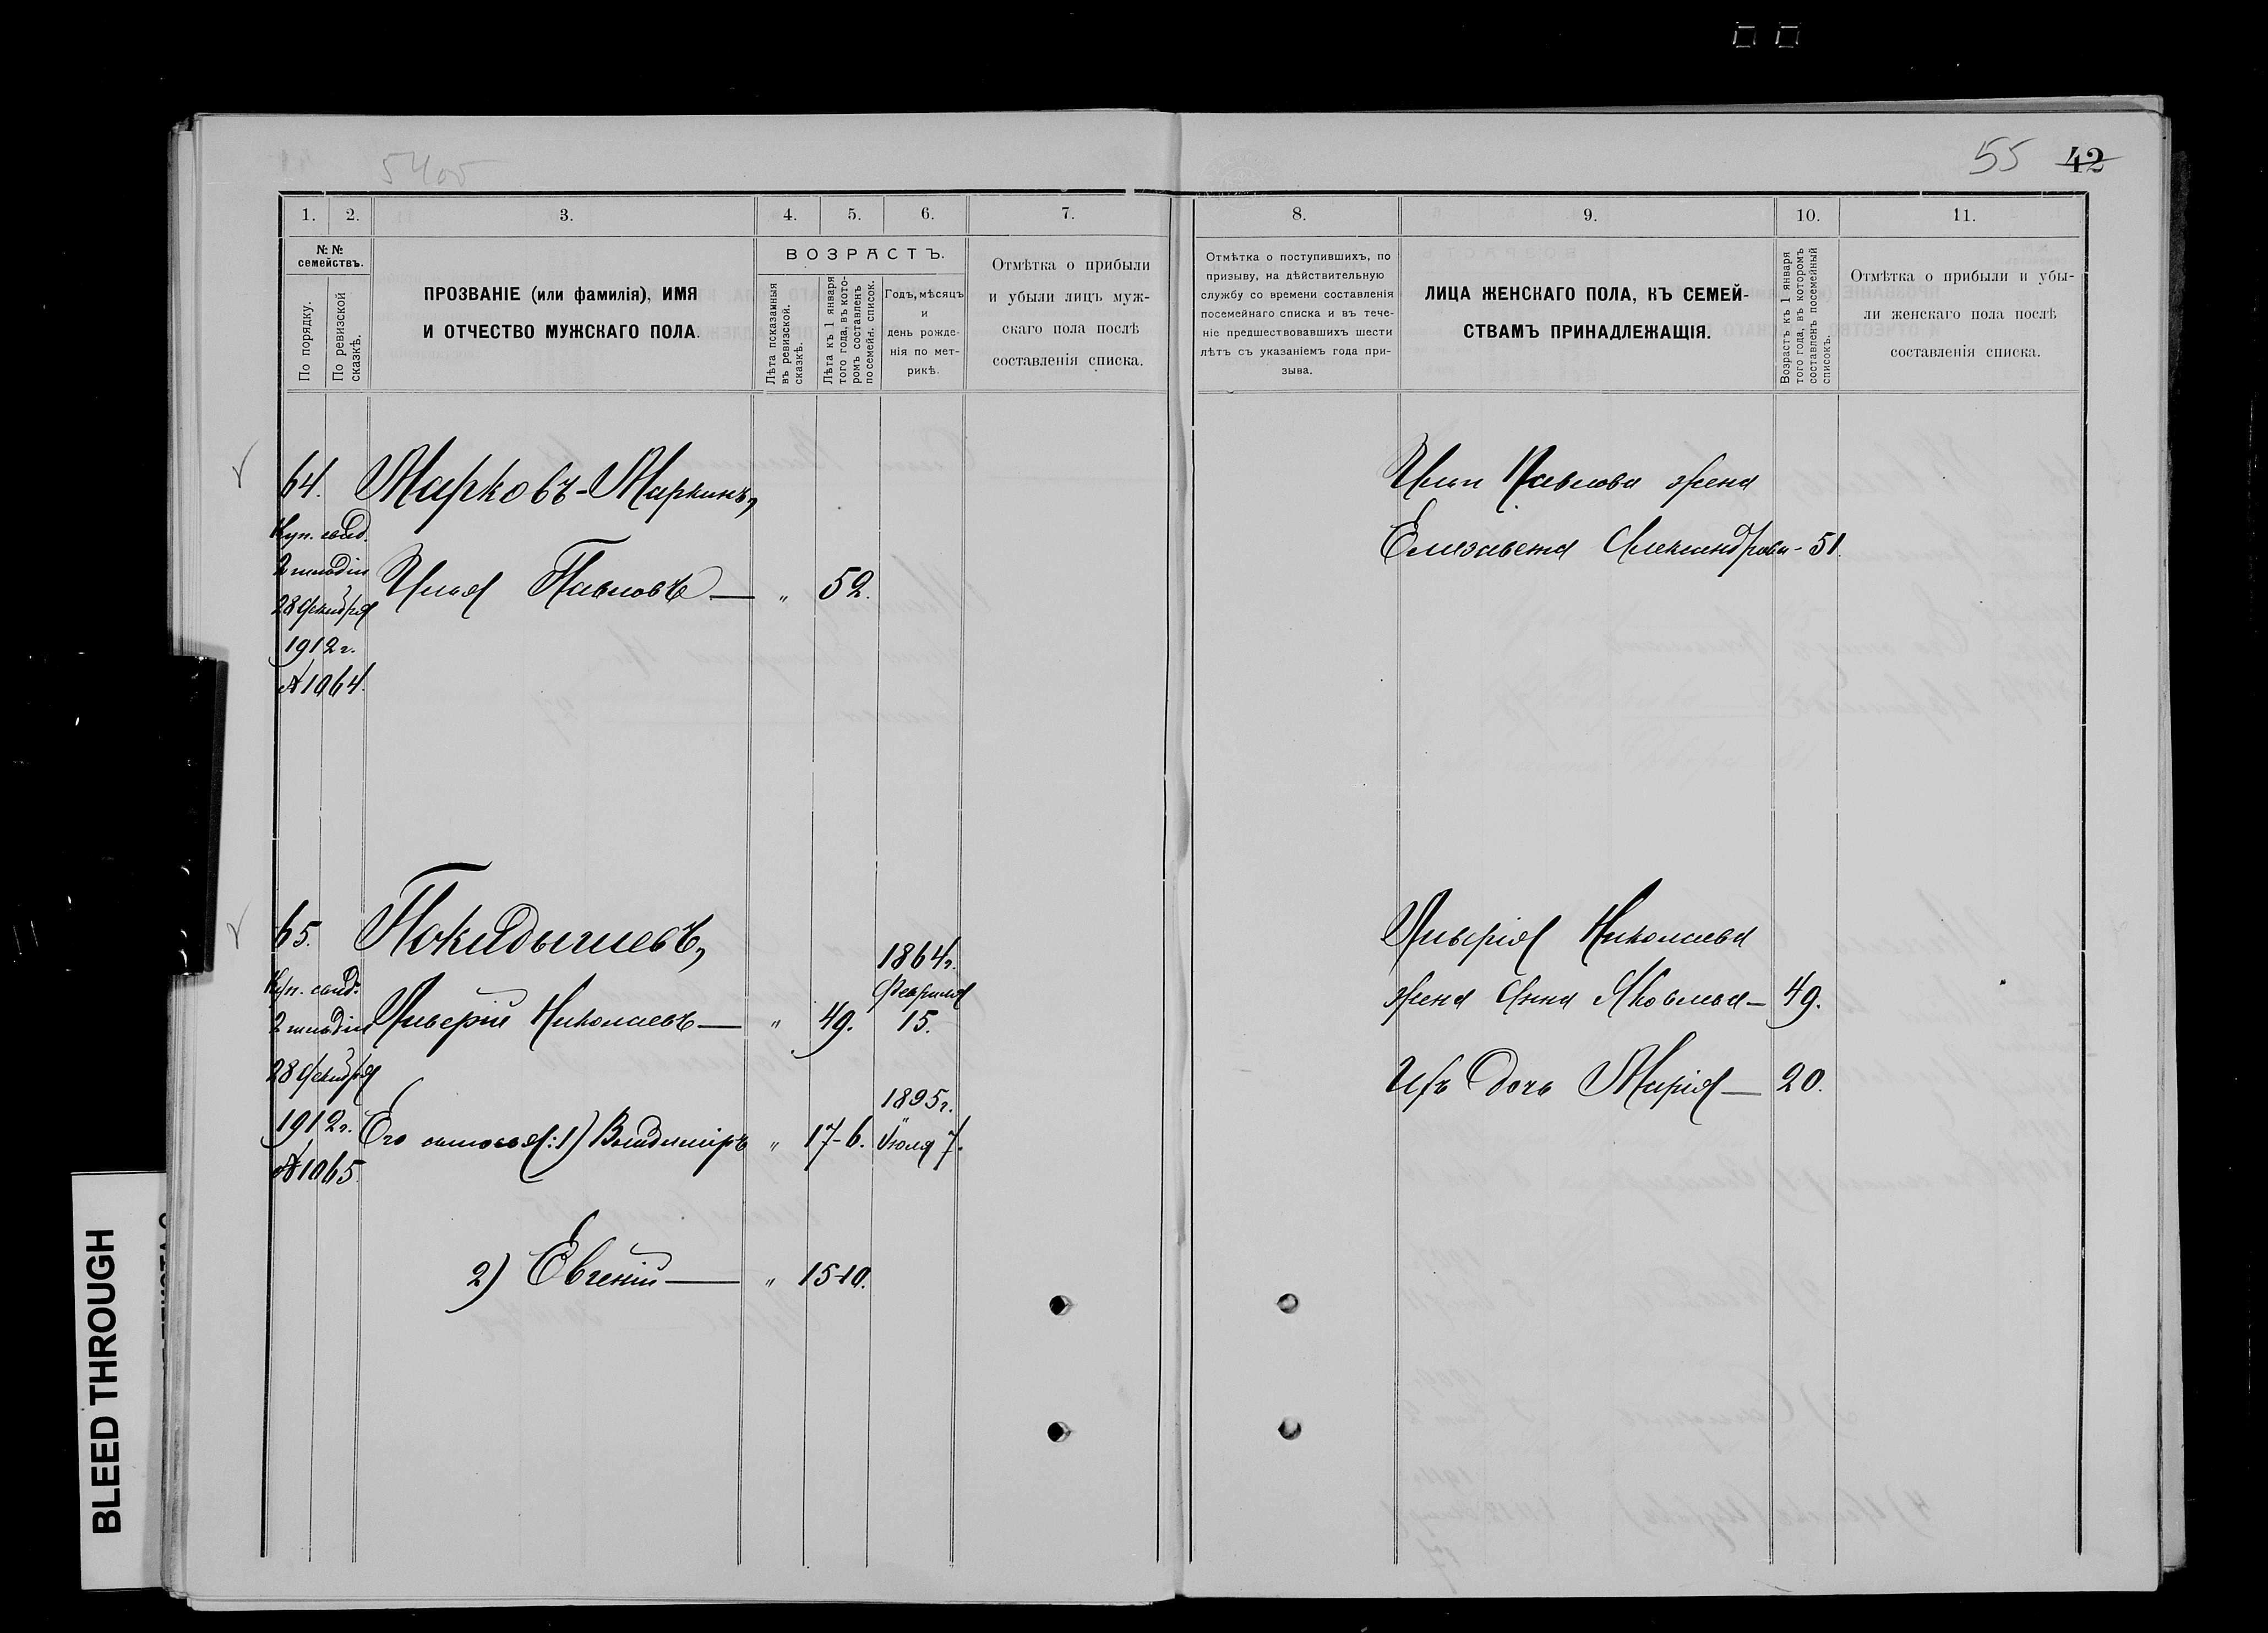 5400
55 42
1. 2. 3. 4. 5. 6. 7.
№ №
семействъ.
По порядку.
По ревизской
сказкѣ.
ПРОЗВАНІЕ (или фамилія), ИМЯ
И ОТЧЕСТВО МУЖСКАГО ПОЛА.
ВОЗРАСТЪ.
Лѣта показанныя
въ ревизской.
сказкѣ.
Лѣта къ 1 января
того года, въ кото-
ромъ составленъ
посемейн. список.
Годъ, мѣсяцъ
и
день рожде-
нія по мет-
рикѣ.
Отмѣтка о прибыли
и убыли лицъ муж-
скаго пола послѣ
составленія списка.
64. Марковъ-Маркинъ,
Куп. свид.
2 гильдіи
Илья Павловъ — " 52.
28 Декабря
1912 г.
№ 1064.
65. Покидышевъ,
1864 г.
Февраля
15.
Куп. свид.
2 гильдіи
Аверій Николаевъ — " 49.
28 Декабря
1895 г.
1912 г.
Его сыновья: 1) Владиміръ " 17-6. Іюля 7.
№ 1065.
2) Евгеній — " 15-10.
8. 9. 10. 11.
Отмѣтка о поступившихъ, по
призыву, на дѣйствительную
службу со времени составленія
посемейнаго списка и въ тече-
ніе предшествовавшихъ шести
лѣтъ съ указаніемъ года при-
зыва.
ЛИЦА ЖЕНСКАГО ПОЛА, КЪ СЕМЕЙ-
СТВАМЪ ПРИНАДЛЕЖАЩІЯ.
Возрастъ къ 1 января
того года, въ которомъ
составленъ посемейный
списокъ.
Отмѣтка о прибыли и убы-
ли женскаго пола послѣ
составленія списка.
Ильи Павлова жена
Елизавета Александрова - 51.
Аверія Николаева
жена Анна Яковлева — 49.
Ихъ дочь Марія — 20.
BLEED THROUGH